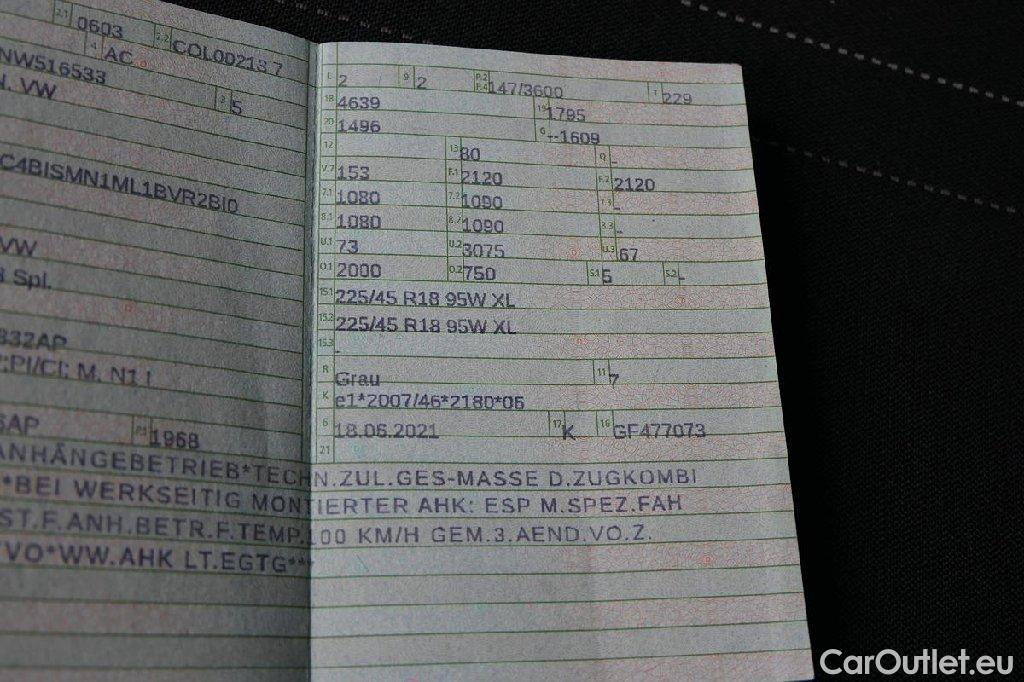 2.1 0603 2.2 COL00218 7
4 AC
NW516533
VW 3 5
C4BISMN1ML1BVR2BI0
VW
Spl.
332AP
PI/CI: M. N1 I
SAP P.1 1968
L 2 9 2 P.2 P.4 147/3600 T 229
18 4639 19 1795
20 1496 G --1609
12 13 80 Q -
V.7 153 F.1 2120 F.2 2120
7.1 1080 7.2 1090 7.3 -
8.1 1080 8.2 1090 8.3 -
U.1 73 U.2 3075 U.3 67
O.1 2000 O.2 750 S.1 5 S.2 -
15.1 225/45 R18 95W XL
15.2 225/45 R18 95W XL
15.3 -
R Grau 11 7
K e1*2007/46*2180*06
6 18.06.2021 17 K 16 GF477073
21
ANHÄNGEBETRIEB*TECHN.ZUL.GES-MASSE D.ZUGKOMBI
*BEI WERKSEITIG MONTIERTER AHK: ESP M.SPEZ.FAH
ST.F.ANH.BETR.F.TEMP.100 KM/H GEM.3.AEND.VO.Z.
VO*WW.AHK LT.EGTG***
CarOutlet.eu